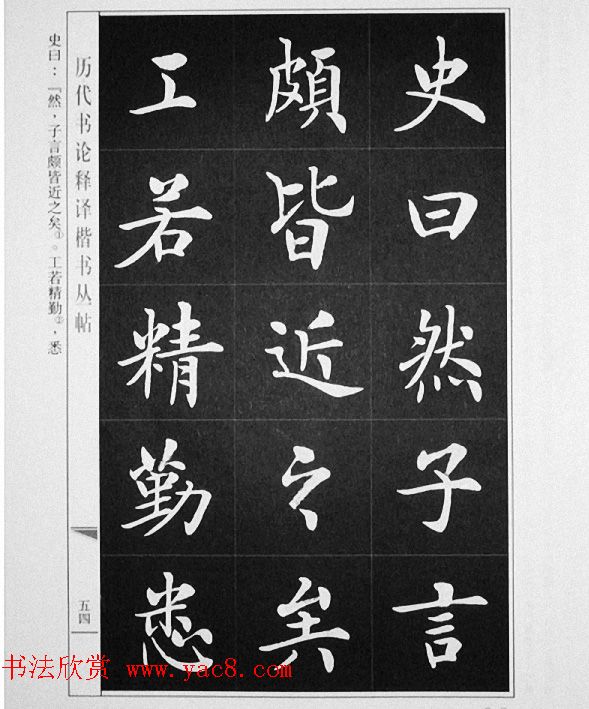 史曰然子言
頗皆近之矣
工若精勤悉
历代书论释译楷书丛帖
五四
史曰：『然，子言颇皆近之矣①。工若精勤②，悉
书法欣赏 www.yac8.com